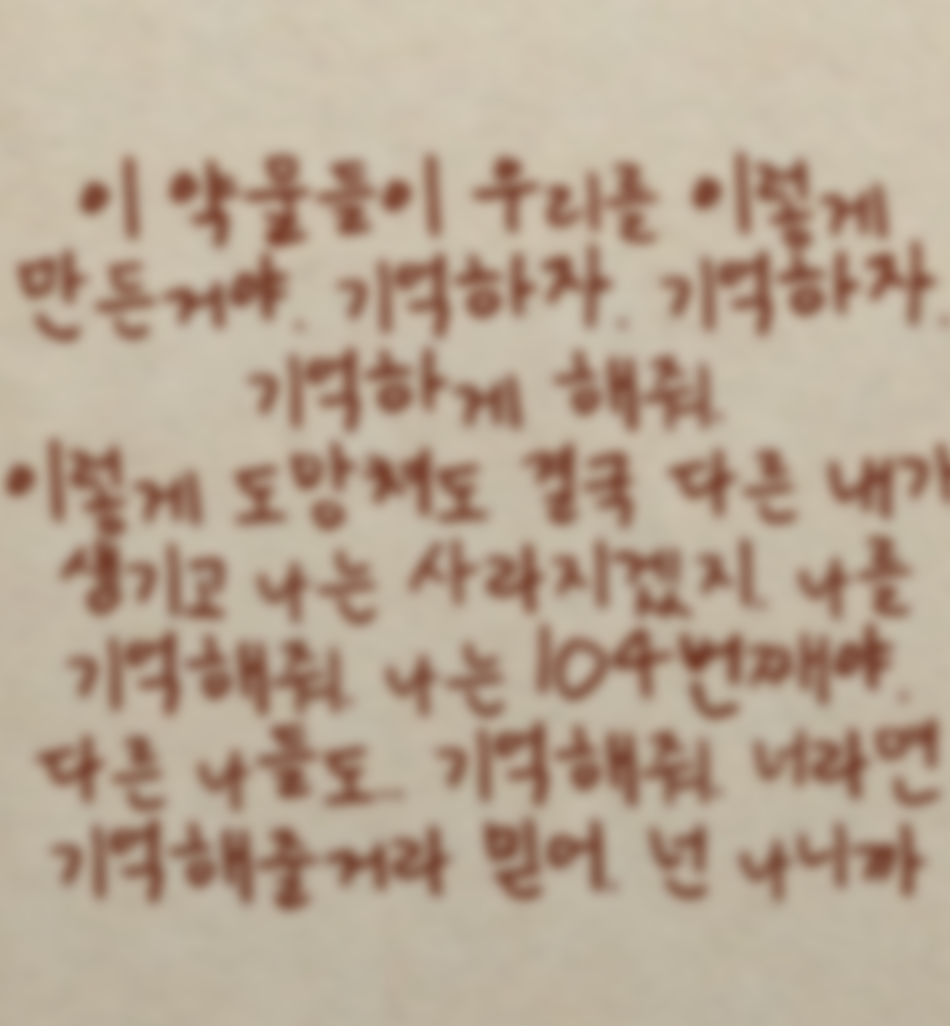 이 약물들이 우리를 이렇게
만든거야. 기억하자. 기억하자.
기억하게 해줘.
이렇게 도망쳐도 결국 다른 내가
생기고 나는 사라지겠지. 나를
기억해줘. 나는 104번째야.
다른 나들도... 기억해줘. 너라면
기억해줄거라 믿어. 넌 나니까